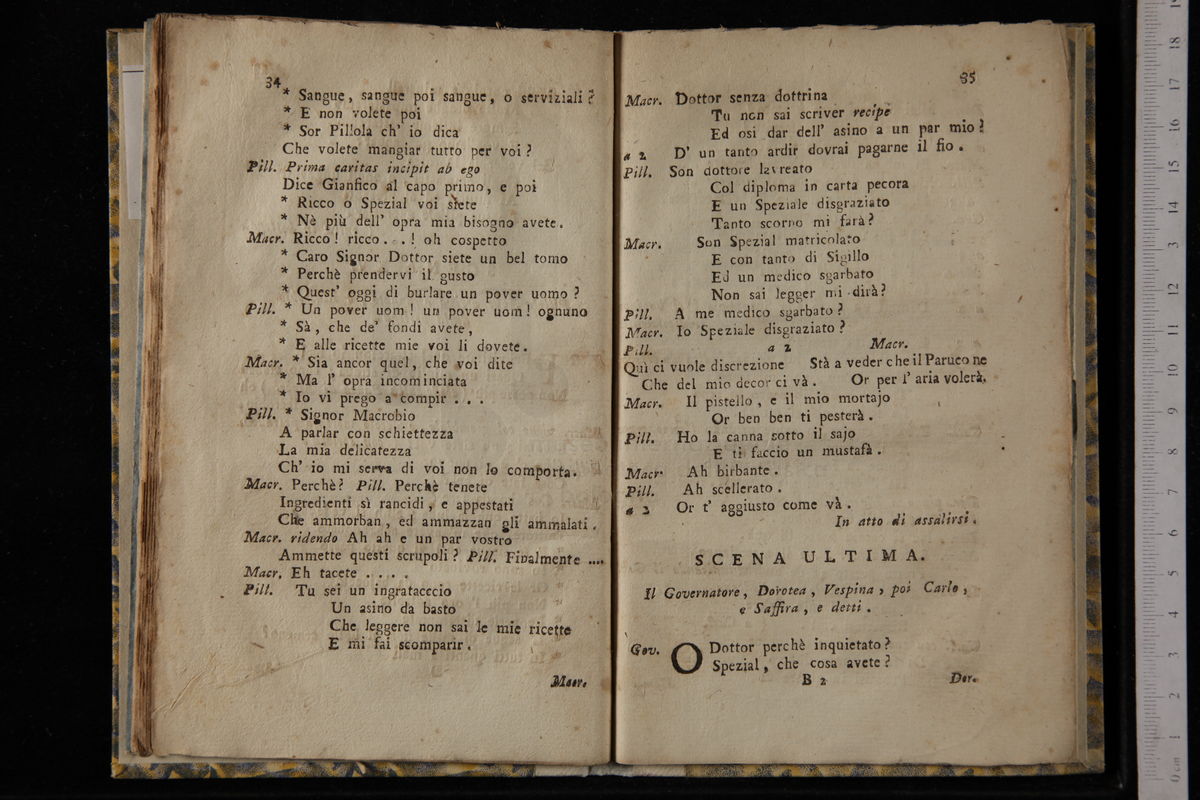 34
* Sangue, sangue poi sangue, o serviziali?
* E non volete poi
* Sor Pillola ch' io dica
Che volete mangiar tutto per voi?
Pill. Prima caritas incipit ab ego
Dice Gianfico al capo primo, e poi
* Ricco o Spezial voi siete
* Nè più dell' opra mia bisogno avete.
Macr. Ricco! ricco...! oh cospetto
* Caro Signor Dottor siete un bel tomo
* Perchè prendervi il gusto
* Quest' oggi di burlare un pover uomo?
Pill. * Un pover uom! un pover uom! ognuno
* Sà, che de' fondi avete,
* E alle ricette mie voi li dovete.
Macr. * Sia ancor quel, che voi dite
* Ma l' opra incominciata
* Io vi prego a compir...
Pill. * Signor Macrobio
A parlar con schiettezza
La mia delicatezza
Ch' io mi serva di voi non lo comporta.
Macr. Perchè? Pill. Perchè tenete
Ingredienti sì rancidi, e appestati
Che ammorban, ed ammazzan gli ammalati.
Macr. ridendo Ah ah e un par vostro
Ammette questi scrupoli? Pill. Finalmente ....
Macr. Eh tacete....
Pill. Tu sei un ingratacccio
Un asino da basto
Che leggere non sai le mie ricette
E mi fai scomparir.
Macr.
35
Macr. Dottor senza dottrina
Tu non sai scriver recipe
Ed osi dar dell' asino a un par mio?
a 2 D' un tanto ardir dovrai pagarne il fio.
Pill. Son dottore laureato
Col diploma in carta pecora
E un Speziale disgraziato
Tanto scorno mi farà?
Macr. Son Spezial matricolato
E con tanto di Sigillo
Ed un medico sgarbato
Non sai legger mi dirà?
Pill. A me medico sgarbato?
Macr. Io Speziale disgraziato?
Pill. a 2 Macr.
Quì ci vuole discrezione Stà a veder che il Parucone
Che del mio decor ci và. Or per l' aria volerà.
Macr. Il pistello, e il mio mortajo
Or ben ben ti pesterà.
Pill. Ho la canna sotto il sajo
E ti faccio un mustafà.
Macr. Ah birbante.
Pill. Ah scellerato.
a 2 Or t' aggiusto come và.
In atto di assalirsi.
SCENA ULTIMA.
Il Governatore, Dorotea, Vespina, poi Carlo,
e Saffira, e detti.
Gov. O Dottor perchè inquietato?
Spezial, che cosa avete?
B 2 Dor.